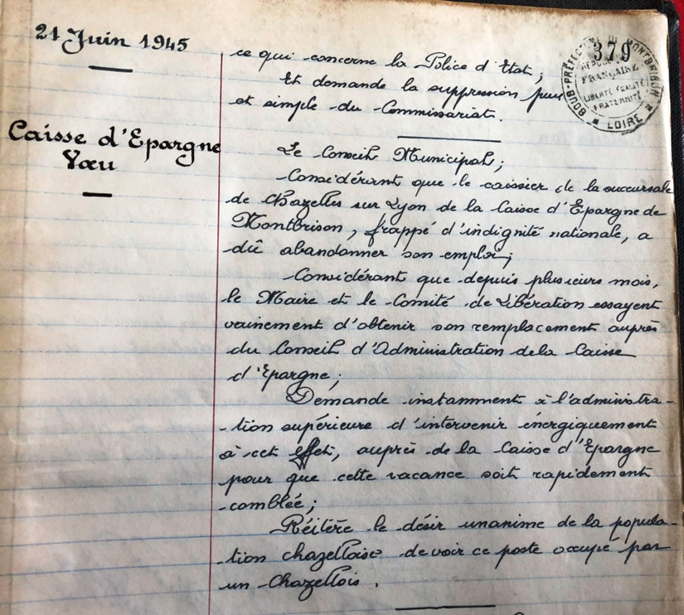 21 Juin 1945
ce qui concerne la Police d'Etat ;
Et demande la suppression pure
et simple du Commissariat.
379
SOUS-PRÉFECTURE DE MONTBRISON
RÉPUBLIQUE
FRANÇAISE
LIBERTÉ ÉGALITÉ
FRATERNITÉ
* LOIRE *
Caisse d'Epargne
Vœu
Le Conseil Municipal ;
Considérant que le caissier de la succursale
de Chazelles sur Lyon de la Caisse d'Epargne de
Montbrison, frappé d'indignité nationale, a
dû abandonner son emploi ;
Considérant que depuis plusieurs mois,
le Maire et le Comité de Libération essayent
vainement d'obtenir son remplacement auprès
du Conseil d'Administration de la Caisse
d'Epargne ;
Demande instamment à l'administra-
-tion supérieure d'intervenir énergiquement
à cet effet, auprès de la Caisse d'Epargne
pour que cette vacance soit rapidement
comblée ;
Réitère le désir unanime de la popula-
-tion chazelloise de voir ce poste occupé par
un Chazellois.